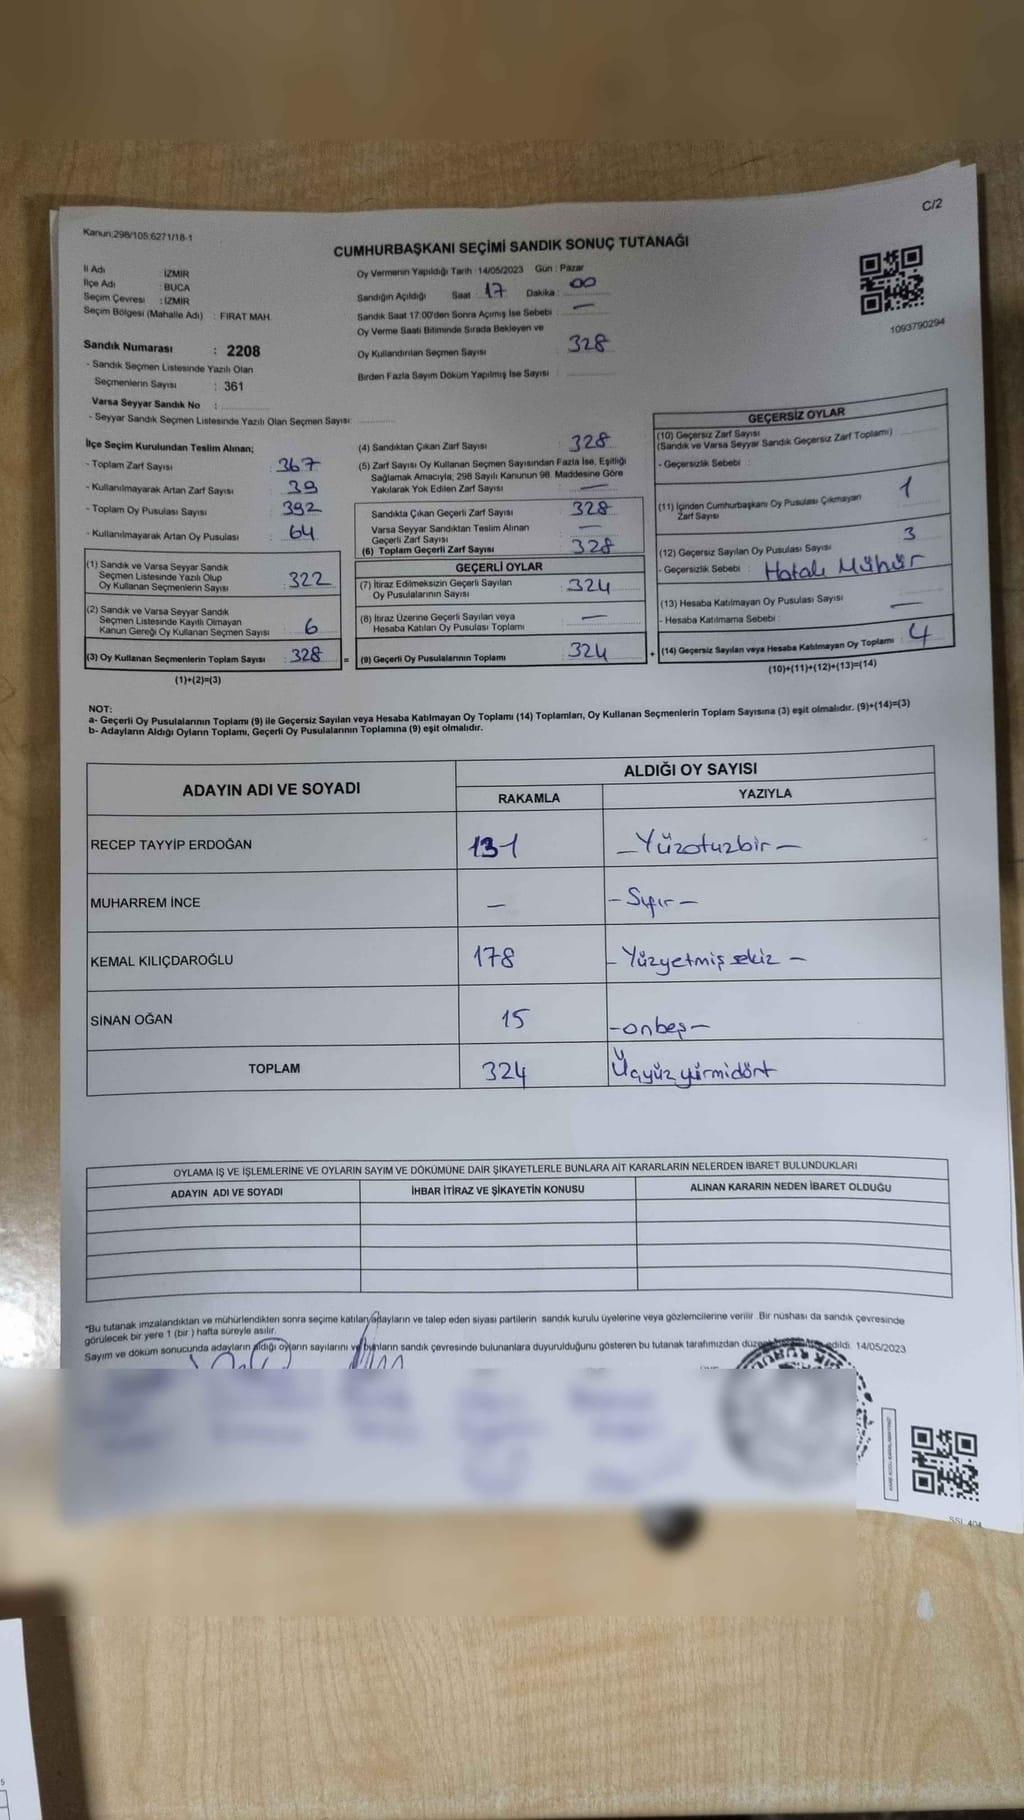 C/2
Kanun;298/105;6271/18-1
CUMHURBAŞKANI SEÇİMİ SANDIK SONUÇ TUTANAĞI
İl Adı : İZMİR
İlçe Adı : BUCA
Seçim Çevresi : İZMİR
Seçim Bölgesi (Mahalle Adı) : FIRAT MAH.
Oy Vermenin Yapıldığı Tarih : 14/05/2023 Gün : Pazar
Sandığın Açıldığı Saat : 17 Dakika : 00
Sandık Saat 17:00'den Sonra Açımış İse Sebebi : —
Oy Verme Saati Bitiminde Sırada Bekleyen ve
Oy Kullandırılan Seçmen Sayısı : 328
Birden Fazla Sayım Döküm Yapılmış İse Sayısı :
1093790294
Sandık Numarası : 2208
- Sandık Seçmen Listesinde Yazılı Olan
Seçmenlerin Sayısı : 361
Varsa Seyyar Sandık No :
- Seyyar Sandık Seçmen Listesinde Yazılı Olan Seçmen Sayısı:
İlçe Seçim Kurulundan Teslim Alınan;
- Toplam Zarf Sayısı : 367
- Kullanılmayarak Artan Zarf Sayısı : 39
- Toplam Oy Pusulası Sayısı : 392
- Kullanılmayarak Artan Oy Pusulası : 64
(1) Sandık ve Varsa Seyyar Sandık
Seçmen Listesinde Yazılı Olup
Oy Kullanan Seçmenlerin Sayısı : 322
(2) Sandık ve Varsa Seyyar Sandık
Seçmen Listesinde Kayıtlı Olmayan
Kanun Gereği Oy Kullanan Seçmen Sayısı : 6
(3) Oy Kullanan Seçmenlerin Toplam Sayısı : 328
(1)+(2)=(3)
=
(4) Sandıktan Çıkan Zarf Sayısı : 328
(5) Zarf Sayısı Oy Kullanan Seçmen Sayısından Fazla İse, Eşitliği
Sağlamak Amacıyla, 298 Sayılı Kanunun 98. Maddesine Göre
Yakılarak Yok Edilen Zarf Sayısı : —
Sandıkta Çıkan Geçerli Zarf Sayısı : 328
Varsa Seyyar Sandıktan Teslim Alınan
Geçerli Zarf Sayısı : —
(6) Toplam Geçerli Zarf Sayısı : 328
GEÇERLİ OYLAR
(7) İtiraz Edilmeksizin Geçerli Sayılan
Oy Pusulalarının Sayısı : 324
(8) İtiraz Üzerine Geçerli Sayılan veya
Hesaba Katılan Oy Pusulası Toplamı : —
(9) Geçerli Oy Pusulalarının Toplamı : 324
+
GEÇERSİZ OYLAR
(10) Geçersiz Zarf Sayısı
(Sandık ve Varsa Seyyar Sandık Geçersiz Zarf Toplamı) :
- Geçersizlik Sebebi :
(11) İçinden Cumhurbaşkanı Oy Pusulası Çıkmayan
Zarf Sayısı : 1
(12) Geçersiz Sayılan Oy Pusulası Sayısı : 3
- Geçersizlik Sebebi : Hatalı Mühür
(13) Hesaba Katılmayan Oy Pusulası Sayısı : —
- Hesaba Katılmama Sebebi :
(14) Geçersiz Sayılan veya Hesaba Katılmayan Oy Toplamı : 4
(10)+(11)+(12)+(13)=(14)
NOT:
a- Geçerli Oy Pusulalarının Toplamı (9) ile Geçersiz Sayılan veya Hesaba Katılmayan Oy Toplamı (14) Toplamları, Oy Kullanan Seçmenlerin Toplam Sayısına (3) eşit olmalıdır. (9)+(14)=(3)
b- Adayların Aldığı Oyların Toplamı, Geçerli Oy Pusulalarının Toplamına (9) eşit olmalıdır.
ADAYIN ADI VE SOYADI
ALDIĞI OY SAYISI
RAKAMLA YAZIYLA
RECEP TAYYİP ERDOĞAN 131 — Yüzotuzbir —
MUHARREM İNCE — - Sıfır —
KEMAL KILIÇDAROĞLU 178 - Yüzyetmiş sekiz —
SİNAN OĞAN 15 - onbeş —
TOPLAM 324 Üçyüz yirmidört
OYLAMA İŞ VE İŞLEMLERİNE VE OYLARIN SAYIM VE DÖKÜMÜNE DAİR ŞİKAYETLERLE BUNLARA AİT KARARLARIN NELERDEN İBARET BULUNDUKLARI
ADAYIN ADI VE SOYADI İHBAR İTİRAZ VE ŞİKAYETİN KONUSU ALINAN KARARIN NEDEN İBARET OLDUĞU
*Bu tutanak imzalandıktan ve mühürlendikten sonra seçime katılan adayların ve talep eden siyasi partilerin sandık kurulu üyelerine veya gözlemcilerine verilir. Bir nüshası da sandık çevresinde
görülecek bir yere 1 (bir) hafta süreyle asılır.
Sayım ve döküm sonucunda adayların aldığı oyların sayılarını ve bunların sandık çevresinde bulunanlara duyurulduğunu gösteren bu tutanak tarafımızdan edildi. 14/05/2023